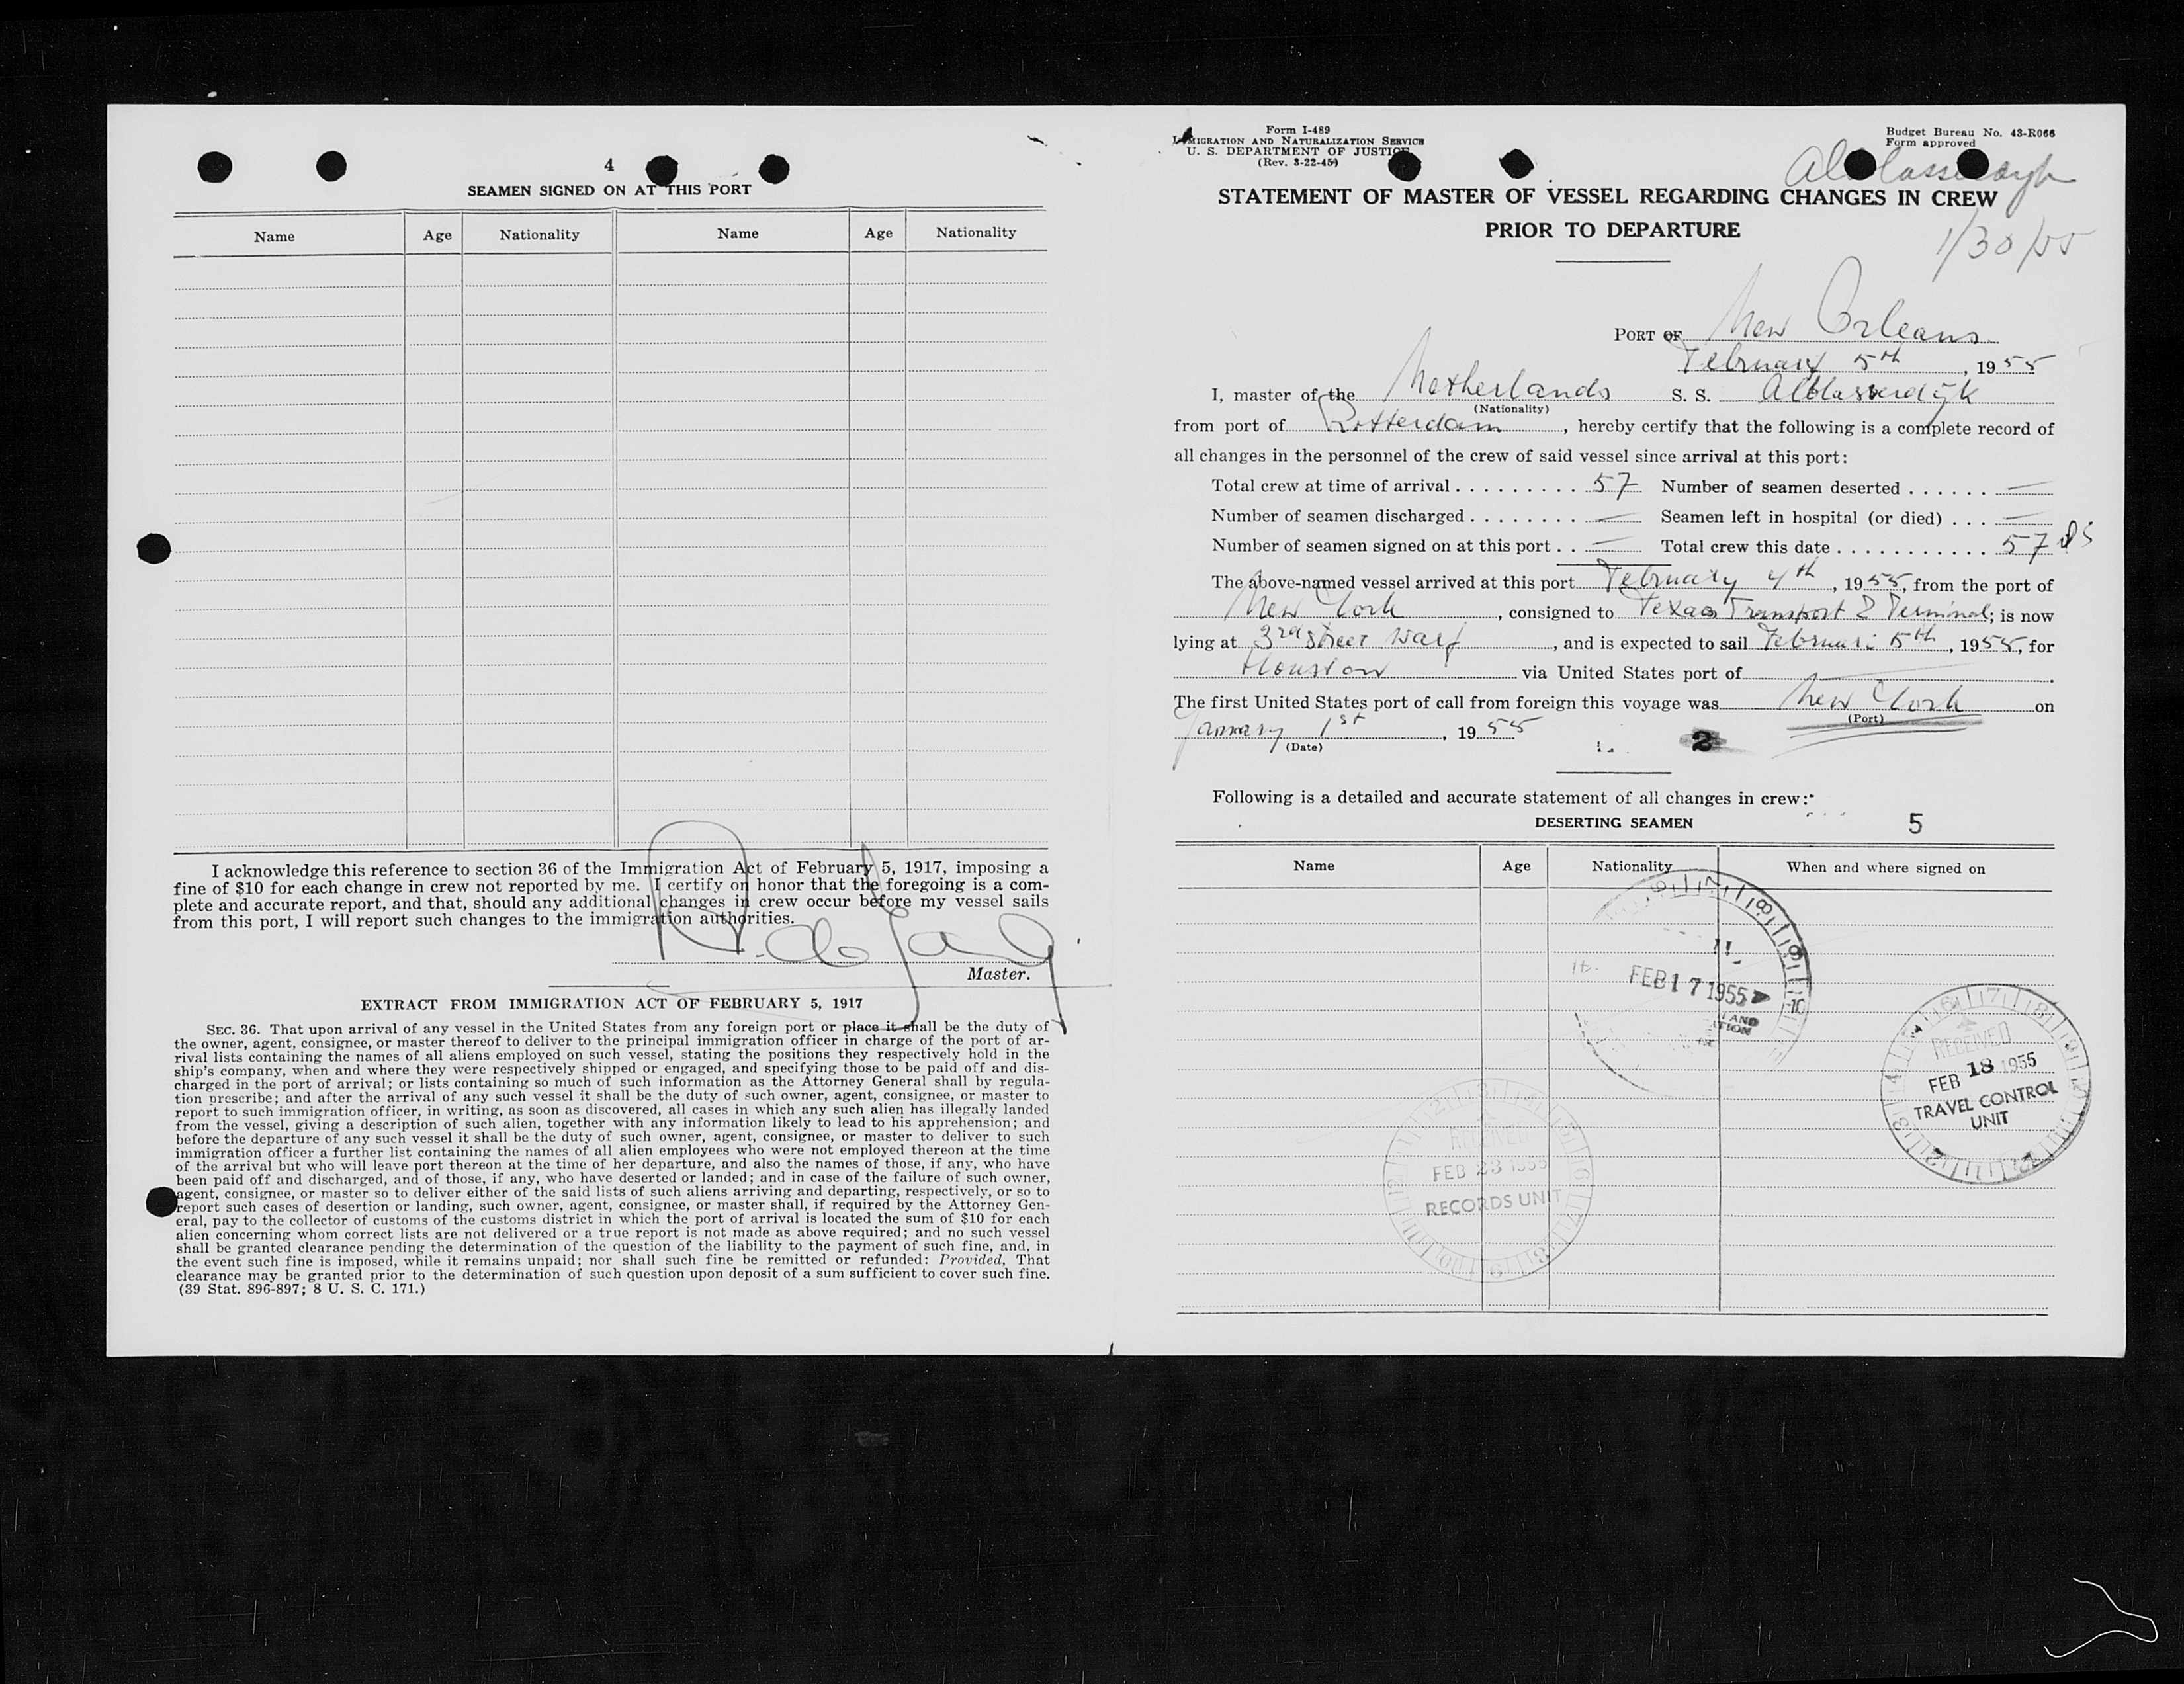 4
SEAMEN SIGNED ON AT THIS PORT
Name Age Nationality Name Age Nationality
I acknowledge this reference to section 36 of the Immigration Act of February 5, 1917, imposing a
fine of $10 for each change in crew not reported by me. I certify on honor that the foregoing is a com-
plete and accurate report, and that, should any additional changes in crew occur before my vessel sails
from this port, I will report such changes to the immigration authorities.
Master.
EXTRACT FROM IMMIGRATION ACT OF FEBRUARY 5, 1917
SEC. 36. That upon arrival of any vessel in the United States from any foreign port or place it shall be the duty of
the owner, agent, consignee, or master thereof to deliver to the principal immigration officer in charge of the port of ar-
rival lists containing the names of all aliens employed on such vessel, stating the positions they respectively hold in the
ship's company, when and where they were respectively shipped or engaged, and specifying those to be paid off and dis-
charged in the port of arrival; or lists containing so much of such information as the Attorney General shall by regula-
tion prescribe; and after the arrival of any such vessel it shall be the duty of such owner, agent, consignee, or master to
report to such immigration officer, in writing, as soon as discovered, all cases in which any such alien has illegally landed
from the vessel, giving a description of such alien, together with any information likely to lead to his apprehension; and
before the departure of any such vessel it shall be the duty of such owner, agent, consignee, or master to deliver to such
immigration officer a further list containing the names of all alien employees who were not employed thereon at the time
of the arrival but who will leave port thereon at the time of her departure, and also the names of those, if any, who have
been paid off and discharged, and of those, if any, who have deserted or landed; and in case of the failure of such owner,
agent, consignee, or master so to deliver either of the said lists of such aliens arriving and departing, respectively, or so to
report such cases of desertion or landing, such owner, agent, consignee, or master shall, if required by the Attorney Gen-
eral, pay to the collector of customs of the customs district in which the port of arrival is located the sum of $10 for each
alien concerning whom correct lists are not delivered or a true report is not made as above required; and no such vessel
shall be granted clearance pending the determination of the question of the liability to the payment of such fine, and, in
the event such fine is imposed, while it remains unpaid; nor shall such fine be remitted or refunded: Provided, That
clearance may be granted prior to the determination of such question upon deposit of a sum sufficient to cover such fine.
(39 Stat. 896-897; 8 U. S. C. 171.)
Form I-489
IMMIGRATION AND NATURALIZATION SERVICE
U. S. DEPARTMENT OF JUSTICE
(Rev. 3-22-45)
Budget Bureau No. 43-R066
Form approved
STATEMENT OF MASTER OF VESSEL REGARDING CHANGES IN CREW
PRIOR TO DEPARTURE
1/30/55
PORT OF New Orleans
February 5th, 1955
I, master of the Netherlands S. S. Alblasserdijk
(Nationality)
from port of Rotterdam, hereby certify that the following is a complete record of
all changes in the personnel of the crew of said vessel since arrival at this port:
Total crew at time of arrival 57 Number of seamen deserted —
Number of seamen discharged — Seamen left in hospital (or died) —
Number of seamen signed on at this port — Total crew this date 57
The above-named vessel arrived at this port February 4th, 1955, from the port of
New York, consigned to Texas Transport & Terminal; is now
lying at 3rd street warf, and is expected to sail Februari 5th, 1955, for
Houston via United States port of —.
The first United States port of call from foreign this voyage was New York on
(Port)
January 1st, 1955
(Date)
2
Following is a detailed and accurate statement of all changes in crew:
DESERTING SEAMEN 5
Name Age Nationality When and where signed on
FEB 17 1955
RECEIVED
FEB 18 1955
TRAVEL CONTROL
UNIT
RECEIVED
FEB 23 1955
RECORDS UNIT